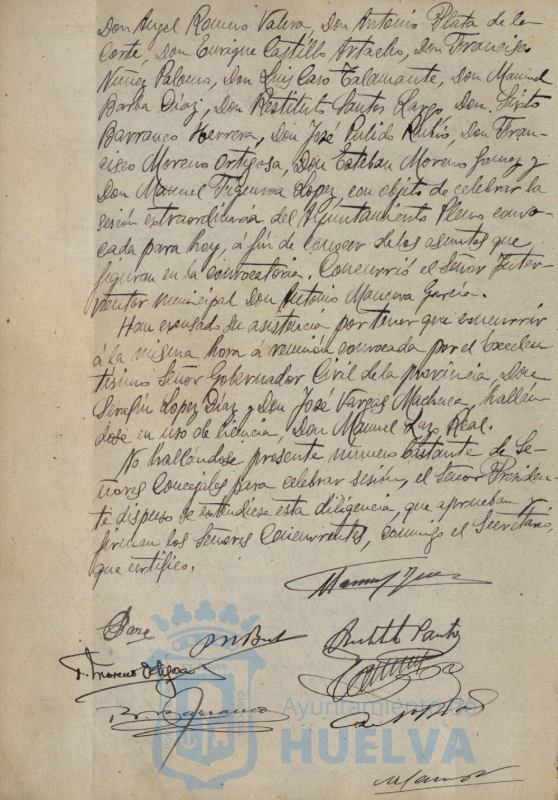 Don Angel Romero Valera, Don Antonio Plata de la
Corte, Don Enrique Castillo Artacho, Don Francisco
Núñez Palomo, Don Luis Caro Talamante, Don Manuel
Barba Diaz, Don Restituto Santos Lazo, Don Sixto
Barranco Herrera, Don José Pulido Rubio, Don Fran-
cisco Moreno Ortigosa, Don Esteban Moreno Gomez y
Don Manuel Figueroa Lopez con objeto de celebrar la
sesión extraordinaria del Ayuntamiento Pleno convo-
cada para hoy, á fin de conocer de los asuntos que
figuran en la convocatoria. Concurrió el Señor Inter-
ventor municipal Don Antonio Mancera Garcia.
Han excusado su asistencia por tener que concurrir
á la misma hora á reunión convocada por el Excelen-
tisimo Señor Gobernador Civil de la Provincia, Don
Serafin Lopez Diaz y Don José Vargas Machuca, hallán-
dose en uso de licencia, Don Manuel Real.
No hallándose presente número bastante de Se-
ñores Concejales para celebrar sesión, el Señor Presiden-
te dispuso se extendiese esta diligencia, que aprueban y
firman los Señores Concurrentes, conmigo el Secretario,
que certifico.
F. Moreno Ortigosa
Barranco
Ayuntamiento de
HUELVA